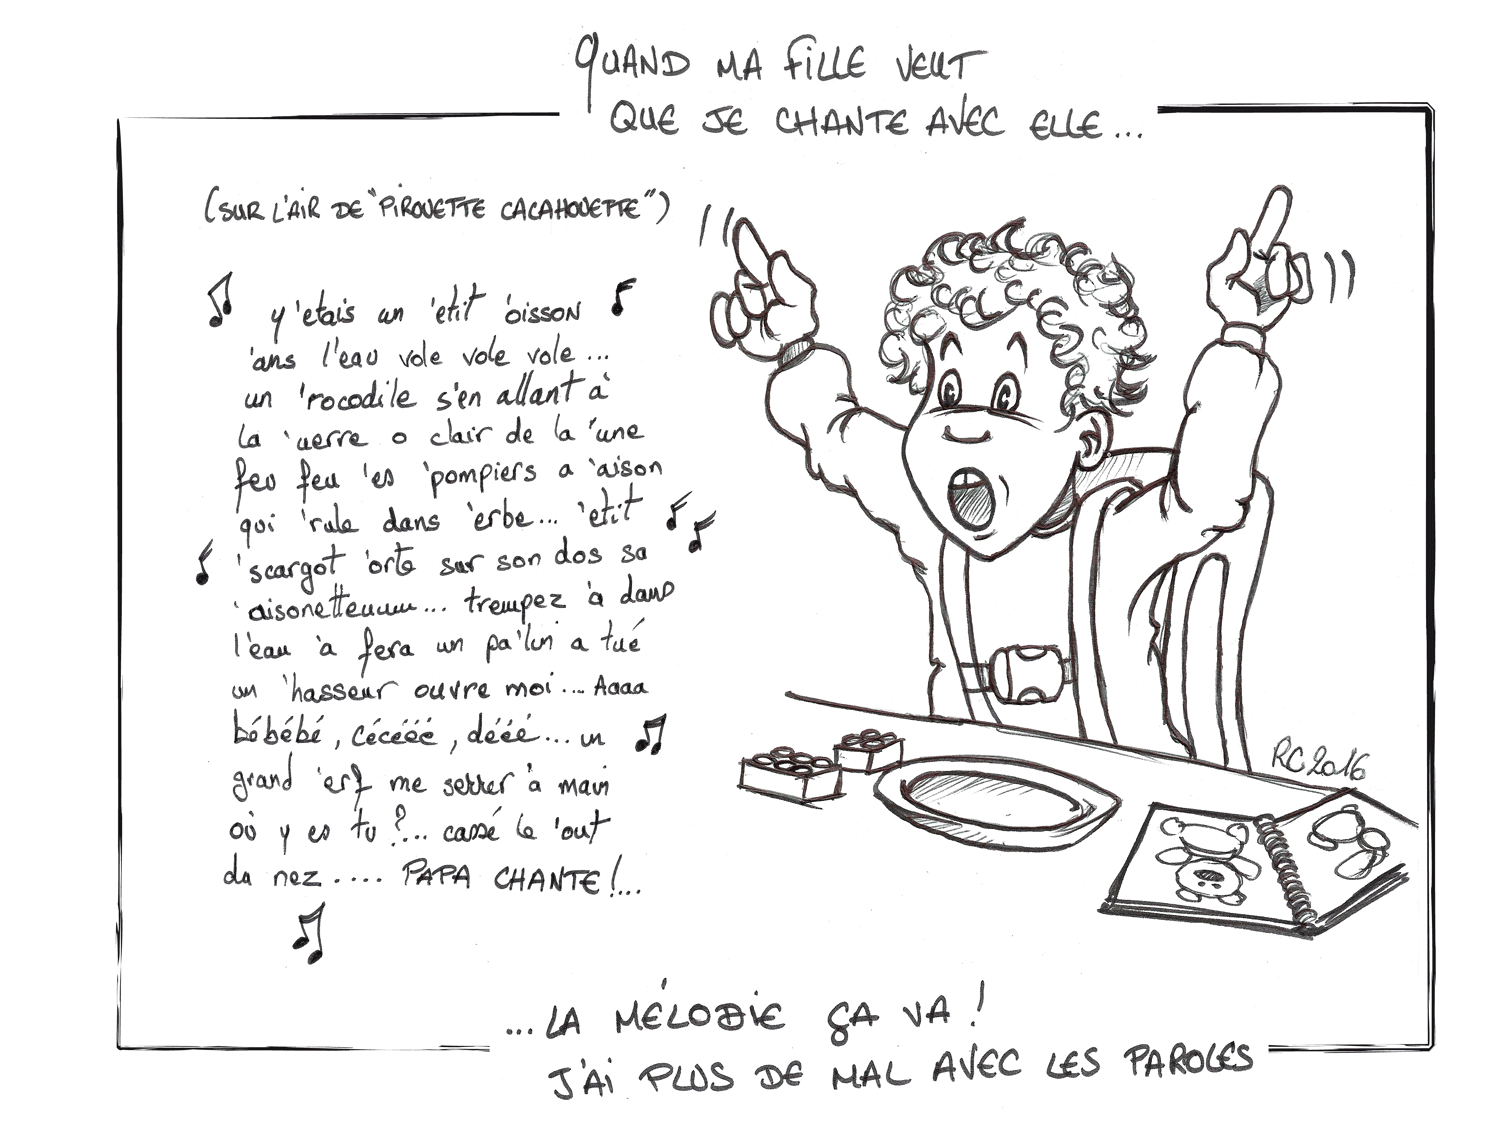 QUAND MA FILLE VEUT
QUE JE CHANTE AVEC ELLE...
(SUR L'AIR DE "PIROUETTE CACAHOUETTE")
y'etais un 'etit 'oisson
'ans l'eau vole vole vole...
un 'rocodile s'en allant à
la 'uerre o clair de la 'une
feu feu 'es 'pompiers a 'aison
qui 'rule dans 'erbe... 'etit
'scargot 'orte sur son dos sa
'aisonetteuuuu... trempez 'a dans
l'eau 'a fera un pa'lin a tué
un 'hasseur ouvre moi... Aaaa
bébébé, cécééé, dééé... un
grand 'erf me serrer 'a main
où y es tu ?... cassé le 'out
du nez.... PAPA CHANTE !...
RC 2016
...LA MÉLODIE ÇA VA !
J'AI PLUS DE MAL AVEC LES PAROLES